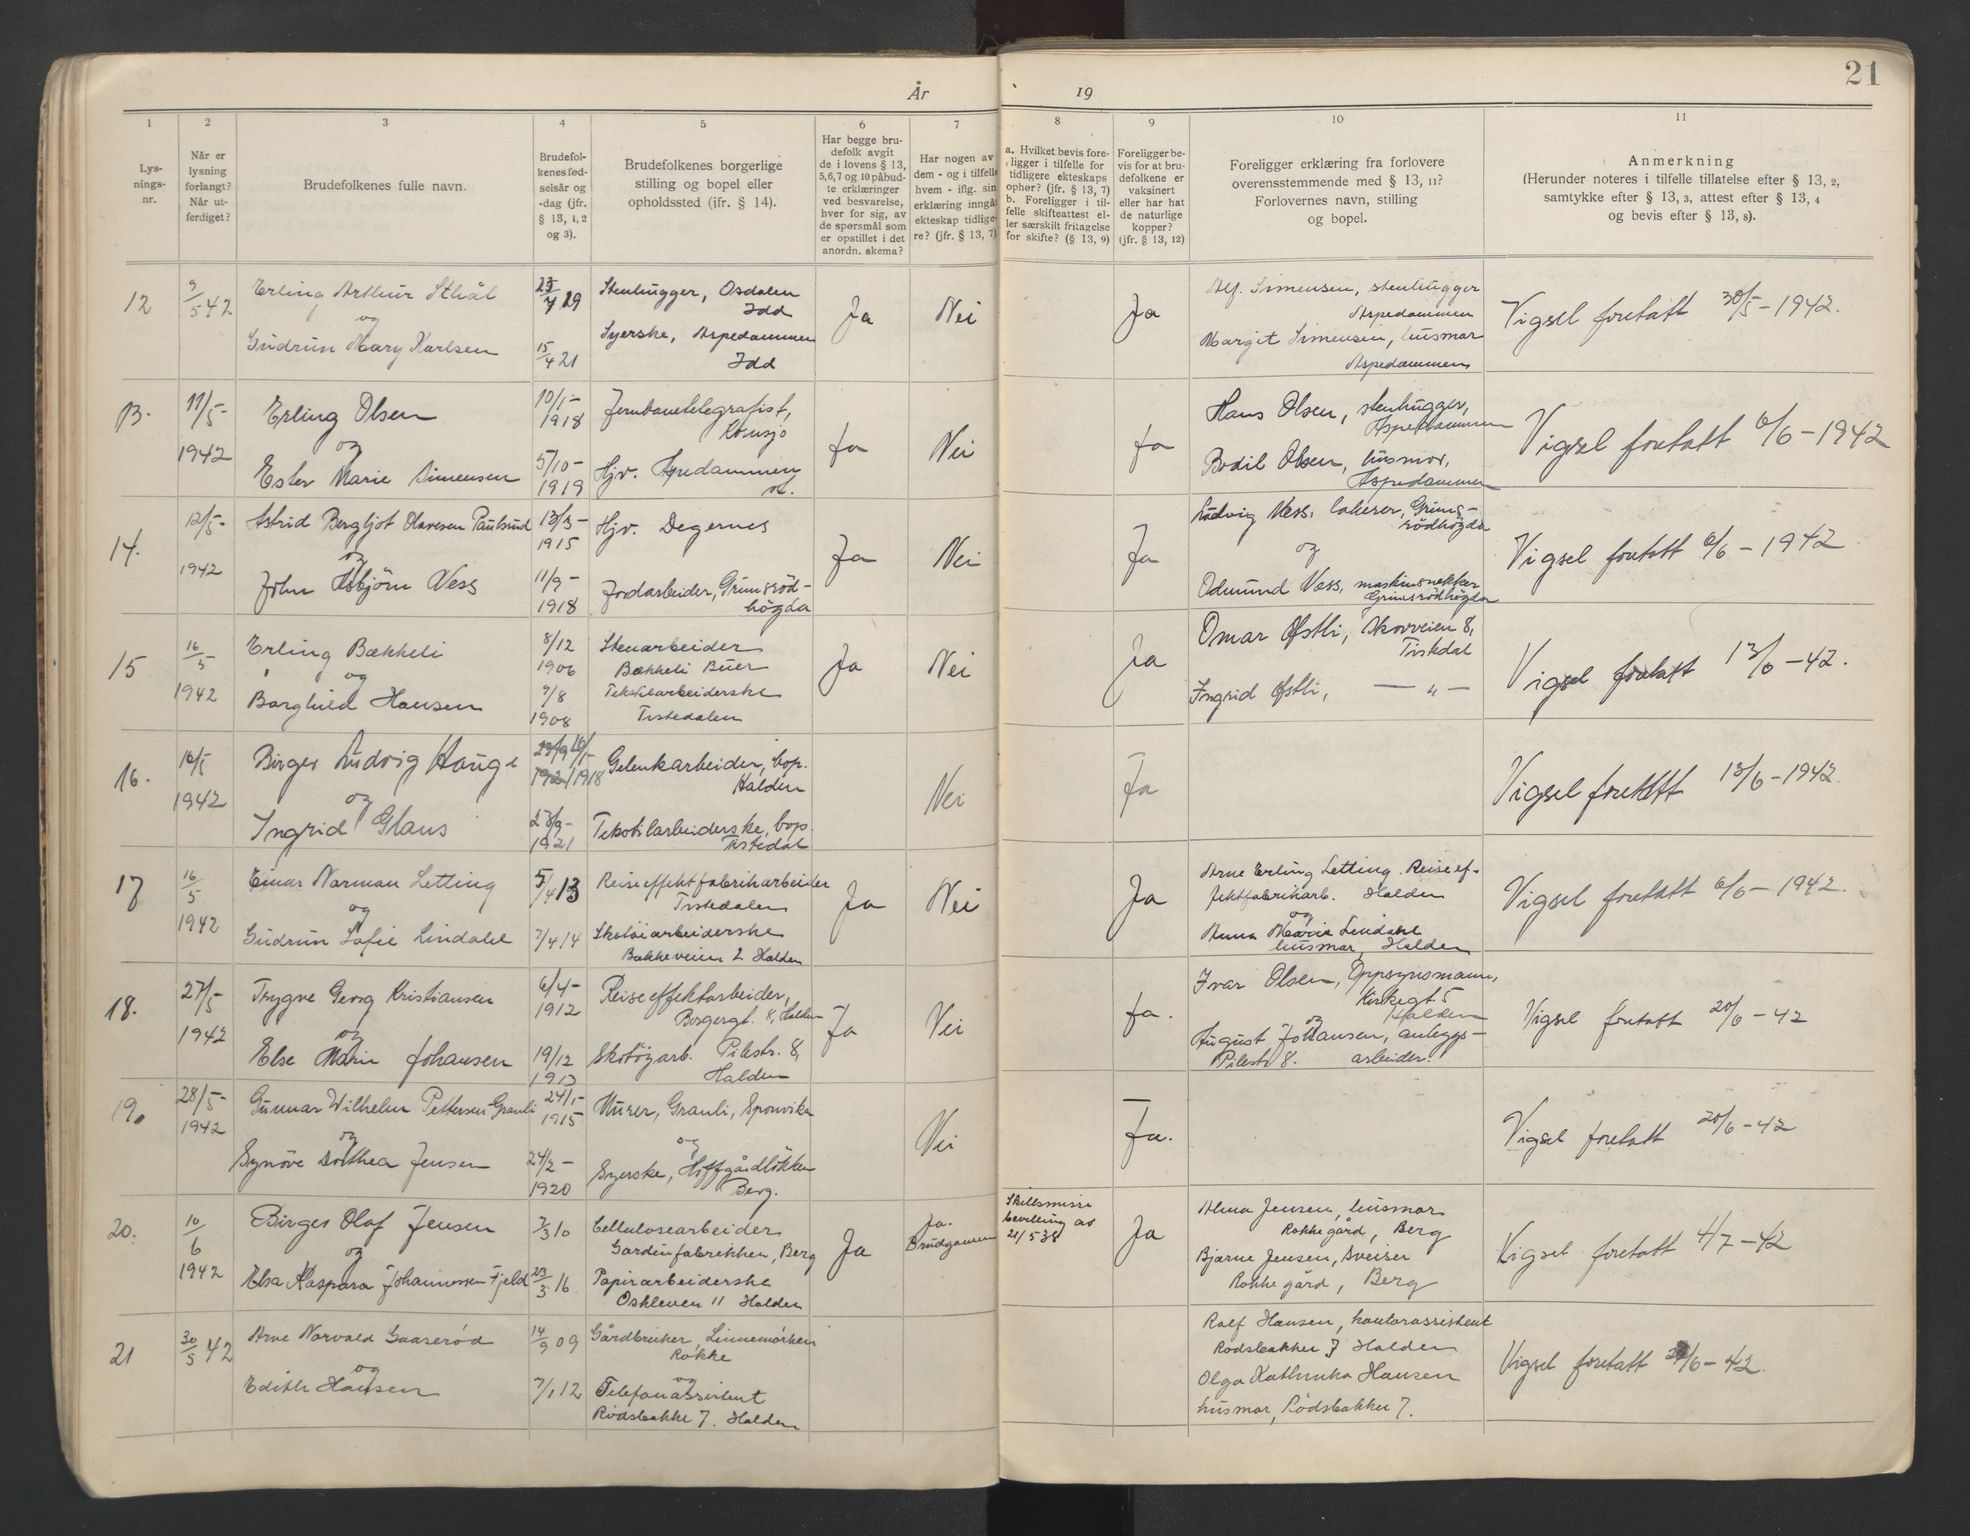 År 19
21
1 2 3 4 5 6 7 8 9 10 11
Lys-
nings-
nr.
Når er
lysning
forlangt?
Når ut-
ferdiget?
Brudefolkenes fulle navn.
Brudefol-
kenes fød-
selsår og
-dag (jfr.
§ 13, 1, 2
og 3).
Brudefolkenes borgerlige
stilling og bopel eller
opholdssted (jfr. § 14).
Har begge bru-
defolk avgit
de i lovens § 13,
5,6,7 og 10 påbud-
te erklæringer
ved besvarelse,
hver for sig, av
de spørsmål som
er opstillet i det
anordn. skema?
Har nogen av
dem - og i tilfelle
hvem - iflg. sin
erklæring inngåt
ekteskap tidlige-
re? (jfr. § 13, 7).
a. Hvilket bevis fore-
ligger i tilfelle for
tidligere ekteskaps
ophør? (jfr. § 13, 7)
b. Foreligger i til-
felle skifteattest el-
ler særskilt fritagelse
for skifte? (§ 13, 9)
Foreligger be-
vis for at bru-
defolkene er
vaksinert
eller har hat
de naturlige
kopper?
(jfr. § 13, 12)
Foreligger erklæring fra forlovere
overensstemmende med § 13, 11?
Forlovernes navn, stilling
og bopel.
Anmerkning
(Herunder noteres i tilfelle tillatelse efter § 13, 2,
samtykke efter § 13, 3, attest efter § 13, 4
og bevis efter § 13, 8).
12
9/5 42
Erling Arthur Ståhl
og
Gudrun Mary Karlsen
23/4 19
15/4 21
Stenhugger, Osdalen
Idd
Syerske, Aspedammen
Idd
Ja
Nei
Ja
Alf. Simensen, stenhugger
Aspedammen
Margit Simensen, husmor
Aspedammen
Vigsel foretatt 30/5-1942.
13.
11/5-
1942
Erling Olsen
og
Ester Marie Simensen
10/1-
1918
5/10-
1919
Jernbanetelegrafist,
Kornsjø
Hjv. Aspedammen
st.
Ja
Nei
Ja
Hans Olsen, stenhugger,
Aspedammen
Bodil Olsen, husmor,
Aspedammen
Vigsel foretatt 6/6-1942
14.
12/5-
1942
Astrid Bergljot Olavesen Paulsrud
og
John Asbjørn Næss
13/3-
1915
11/9-
1918
Hjv. Degernes
Jordarbeider, Grimsrød-
høgda
Ja
Nei
Ja
Ludvig Næss, Grims-
rødhøgda
og
Odmund Næss, maskinsnekker
Grimsrødhøgda
Vigsel foretatt 6/6-1942
15
16/5
1942
Erling Bækkeli
og
Borghild Hansen
8/12
1906
9/8
1908
Stenarbeider
Bækkeli Buer
Tekstilarbeiderske
Tistedalen
Ja
Nei
Ja
Omar Østli, Skovveien 8,
Tistedal
Ingrid Østli, — " —
Vigsel foretatt 13/6-42.
16.
16/5
1942
Birger Ludvig Hauge
og
Ingrid Glans
1918
23/9-
1921
Gelenkarbeider, bop.
Halden
Tekstilarbeiderske, bop.
Tistedal
Nei
Ja
Vigsel foretatt 13/6-1942.
17
16/5
1942
Einar Norman Letting
og
Gudrun Sofie Lindahl
5/4 13
7/4 14
Reiseffektfabrikarbeider
Tistedalen
Skotøiarbeiderske
Bakkeveien 2 Halden
Ja
Nei
Ja
Arne Erling Letting. Reiseef-
fektfabrikarb. Halden
og
Anna Maria Lindahl
husmor, Halden
Vigsel foretatt 6/6-1942.
18.
27/5-
1942
Trygve Georg Kristiansen
og
Else Marie Johansen
6/4-
1912
19/12
1913
Reiseeffektarbeider,
Borgergt. 8, Halden
Skotøyarb. Pilestr. 8,
Halden
Ja
Nei
Ja.
Ivar Olsen, Oppsynsmann,
Kirkegt 5
og Halden
August Johansen, anleggs-
Pilestr 8. arbeider.
Vigsel foretatt 20/6-42
19.
28/5-
1942
Gunnar Wilhelm Pettersen-Grauli
og
Synøve Dorthea Jensen
24/1-
1915
24/2-
1920
Murer, Grauli, Sponvika
og
Syerske,
Berg.
Nei
Ja.
Vigsel foretatt 20/6-42
20.
10/6
1942
Birger Olaf Jensen
og
Elsa Kaspara Johannessen Fjeld
7/3 10
23/3 16
Cellulosearbeider
Gardinfabrikken, Berg
Papirarbeiderske
Oskleven 11 Halden
Ja
Ja.
Brudgommen
Skillsmisse
bevilling av
21/5 38
Ja
Alma Jensen, husmor
Rokke gård, Berg
Bjarne Jensen, sveiser
Rokke gård, Berg
Vigsel foretatt 4/7-42
21
30/5 42
Arne Norvald Gaaserød
og
Edith Hansen
14/9 09
7/1 12
Gårdbruker, Linnemørken
Rokke
og
Telefonassistent
Rødsbakke 7. Halden
Rolf Hansen, kontorassistent
Rødsbakken 7 Halden
Olga Kathinka Hansen
husmor, Rødsbakken 7.
Vigsel foretatt